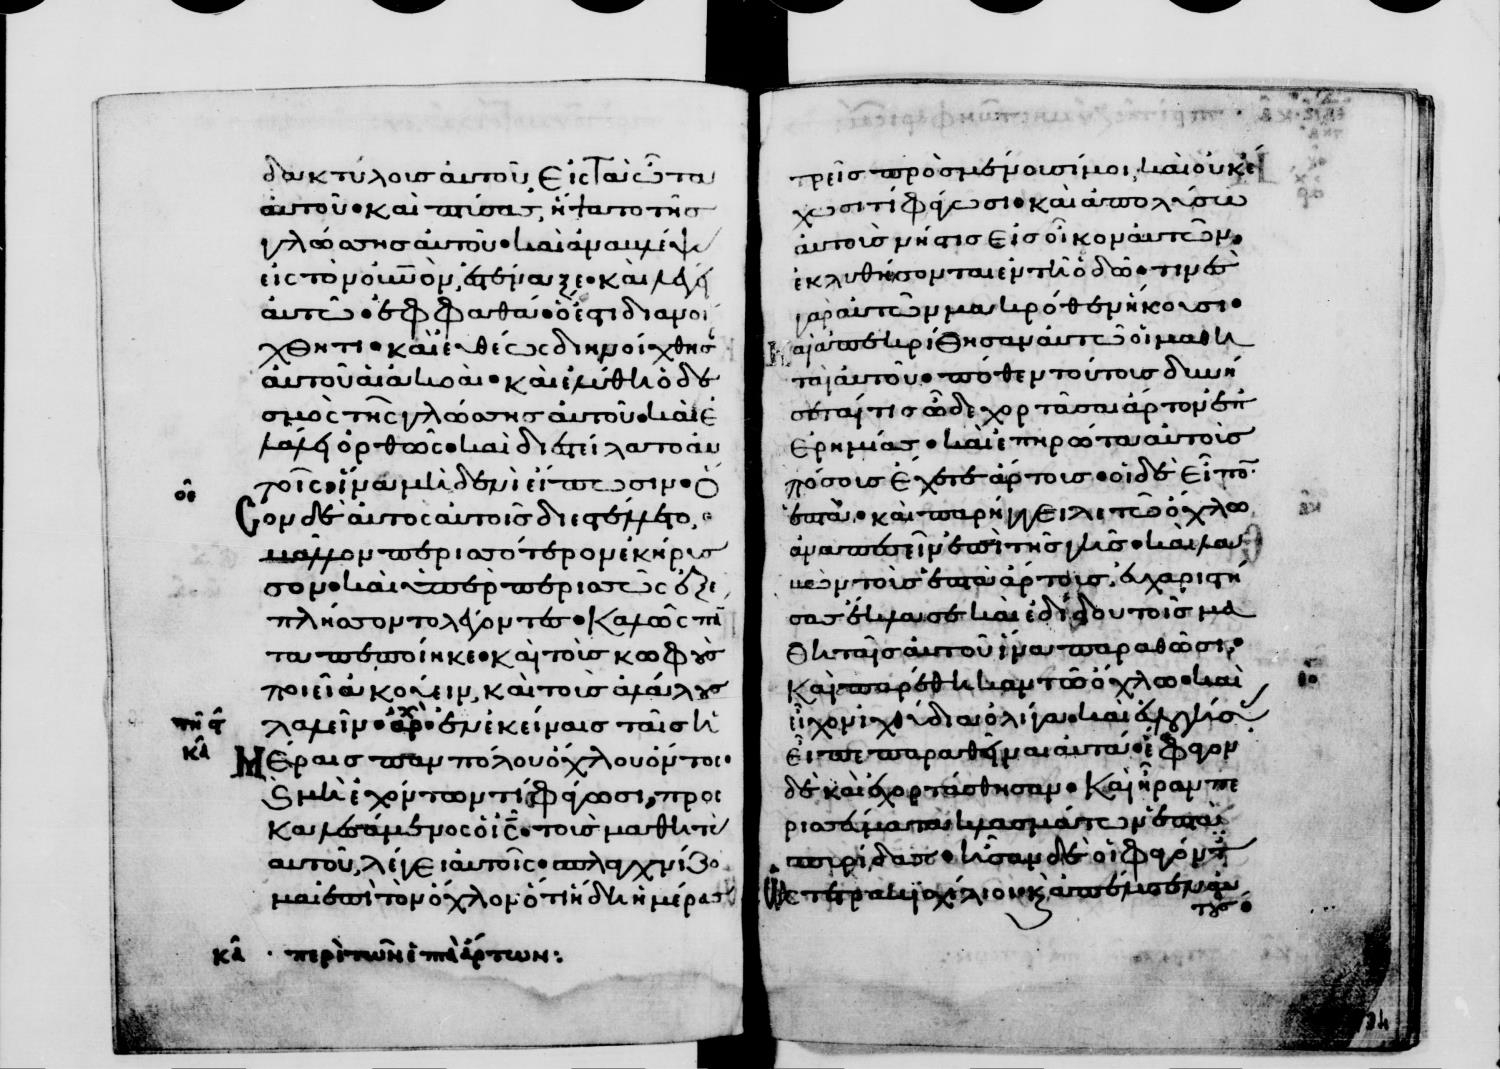 δακτύλους αυτοῦ, Εἰς τὰ ὦτα
αὐτοῦ· καὶ πτύσας, ἥψατο τῆς
γλώσσης αὐτοῦ· καὶ ἀναβλέψας
εἰς τὸν οὐ̅νὸν, ἐστέναξε· καὶ λέγει
αὐτῶ· ἐφφαθά· ὅ ἐστι διανοί
χθητι· καὶ εὐθέως διηνοίχθησ
αὐτοῦ αἱ ἀκοαί· καὶ ἐλύθη ὁ δε
σμὸς τῆς γλώσσης αὐτοῦ· καὶ ἐ
λάλει ὀρθῶς· καὶ διεστείλατο αὐ
τοῖς· ἵνα μηδενὶ εἴπωσιν· Ὅ
οε
σον δὲ αὐτος αὐτοῖς διεστέλλετο,
μᾶλλον περισσότερον ἐκήρυσ
σον· καὶ ὑπὲρ περισσῶς ἐξε
πλήσσοντο λέγοντες· Καλῶς πά
τα πεποίηκε· καὶ τοὺς κωφοὺς
ποιεῖ ἀκούειν, καὶ τοὺς ἀλάλους
λαλεῖν· ἀρχ· ἐν ἐκείναις ταῖς ἡ
κα
Μέραις παμπόλου ὄχλου ὄντος·
ϗ μὴ ἐχόντων τί φάγωσι, προς
καλεσάμενος ὁ ις· τοὺς μαθητὰς
αυτοῦ, λέγει αὐτοῖς· σπλαγχνίζο
μαι ἐπὶ τὸν ὄχλον ὅτι ἤδη ἡμέρας
κα · περὶ τῶν ἑπτὰ ἄρτων:
τρεῖς προσμένουσί μοι, καὶ οὐκ ἔ
χωσι τί φάγωσι· καὶ ἀπολύσω
αὐτοὺς νήστις εἰς οἶκον αὐτῶν,
ἐκλυθήσονται ἐν τῆ ὁδῶ· τινὲς
γὰρ αὐτῶν μακρόθεν ἥκουσι·
Καὶ ἀπεκρίθησαν αὐτῶ οἱ μαθη
ταὶ αὐτοῦ· πόθεν τούτους δυνή
σεταί τις ὧδε χορτᾶσαι ἄρτον ἐπ
ἐρημίας· καὶ ἐπηρώτα αὐτοὺς
πόσους ἔχετε ἄρτους· οἱ δὲ εἶπον·
ἑπτά· καὶ παρήγγειλε τῶ ὄχλω
ἀναπεσεῖν ἐπὶ τῆς γῆς· καὶ λα
βὼν τοὺς ἑπτὰ ἄρτους, εὐχαριστή
σας ἔκλασε καὶ ἐδίδου τοῖς μα
θηταῖς αὐτοῦ ἵνα παραθῶσι,
Καὶ παρέθηκαν τῶ ὄχλω· καὶ
εἶχον ἰχθύδια ὀλίγα· καὶ εὐλογήσας
εἶπε παραθῆναι αὐτά· ἔφαγον
δὲ καὶ ἐχορτάσθησαν· Καὶ ἦραν πε
ρισσεύματα κλασμάτων ἑπτὰ
σπυρίδας· ἦσαν δὲ οἱ φαγόντες
ὡς τετρακισχίλιοι· κ ἀπέλυσεν αὐ
τους·